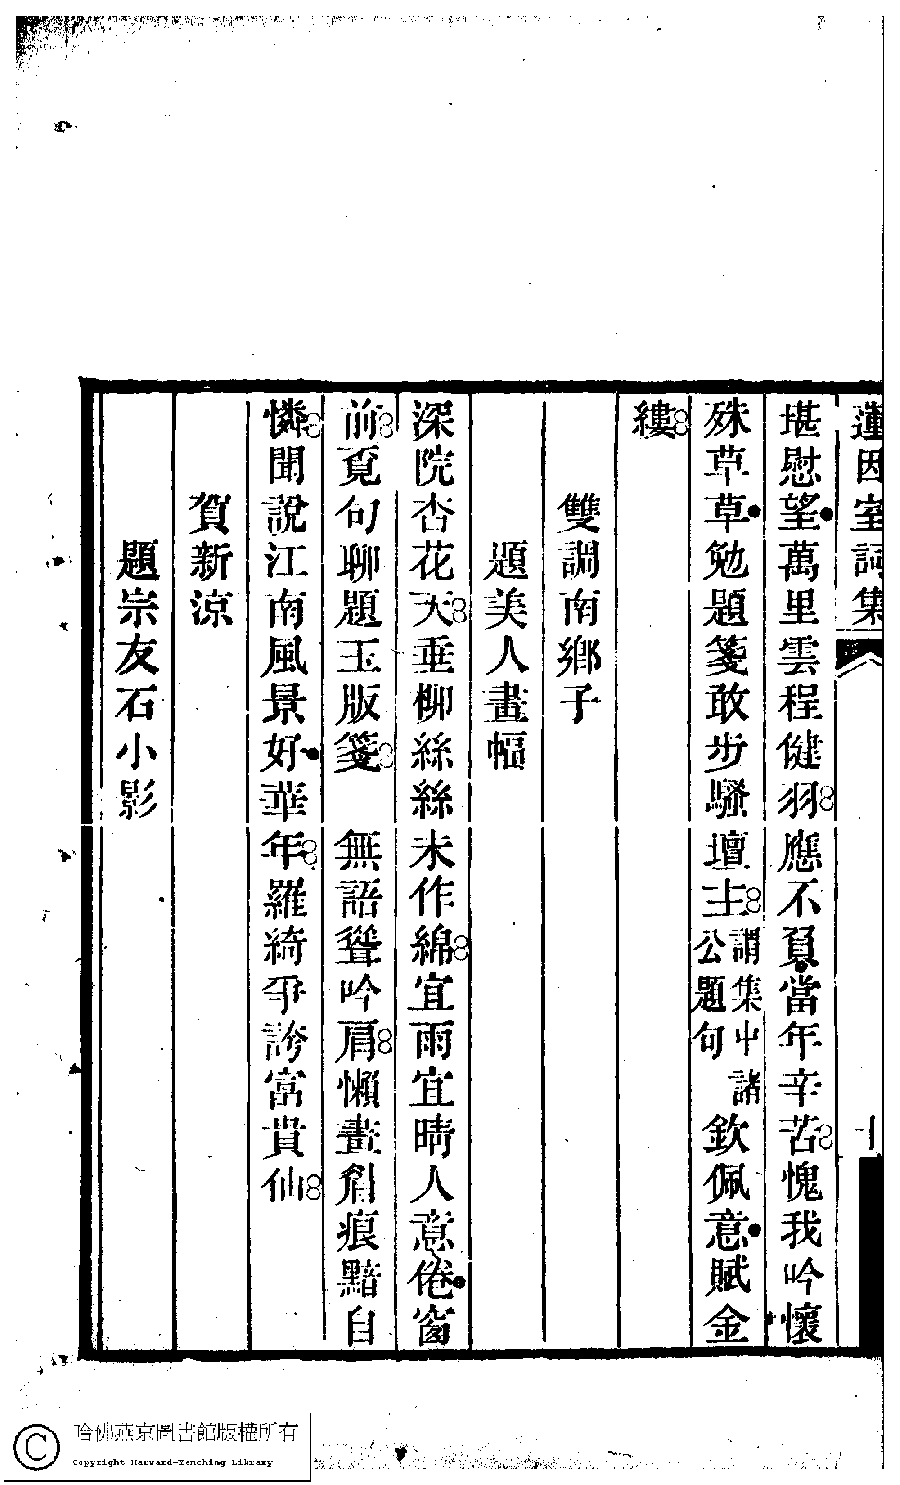 蓮因室詞集
堪慰望萬里雲程健羽應不負當年辛苦愧我吟懷
殊草草勉題箋敢步騷壇主謂集中諸公題句欽佩意賦金
縷
雙調南鄉子
題美人畫幅
深院杏花天垂柳絲絲未作綿宜雨宜晴人意倦窗
前覓句聊題玉版箋 無語聳吟肩懶畫眉痕黯自
憐聞說江南風景好華年羅綺爭誇富貴仙
賀新涼
題宗友石小影
哈佛燕京圖書館版權所有
Copyright Harvard-Yenching Library